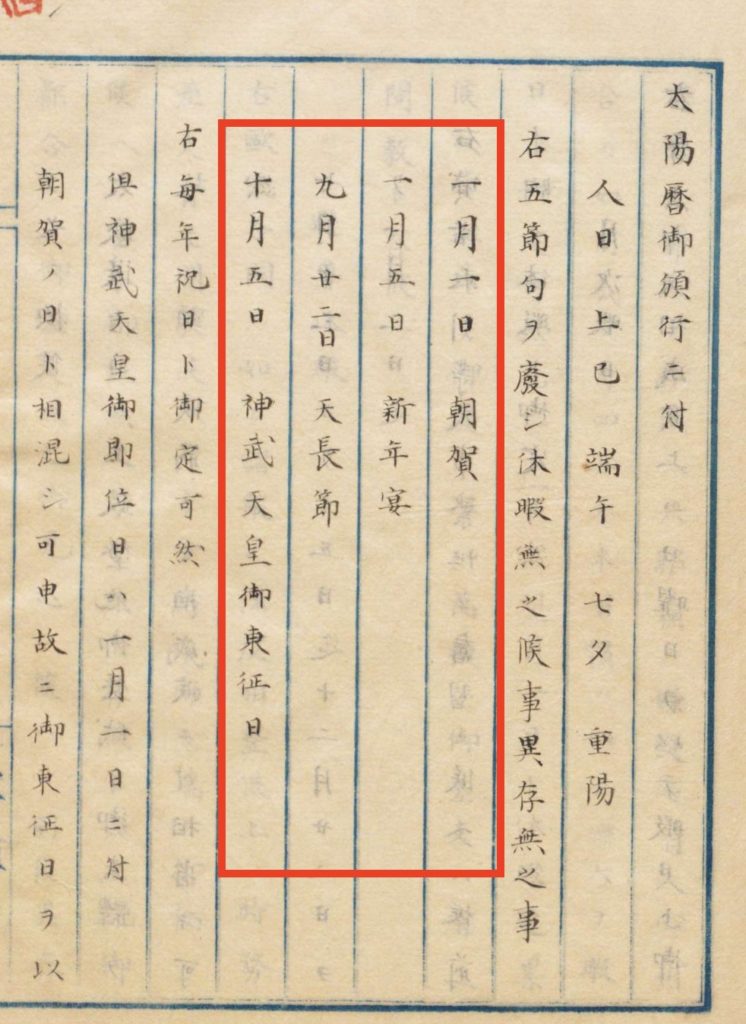 太陽暦御頒行ニ付
人日上巳 端午 七夕 重陽
右五節句ヲ廃シ休暇無之候事異存無之事
一月一日 朝賀
一月五日新年宴
九月廿二日天長節
十月五日 神武天皇御東征日
右毎年祝日ト御定可然
但神武天皇御即位日ハ一月一日ニ付
朝賀ノ日ト相混シ可申故ニ御東征日ヲ以